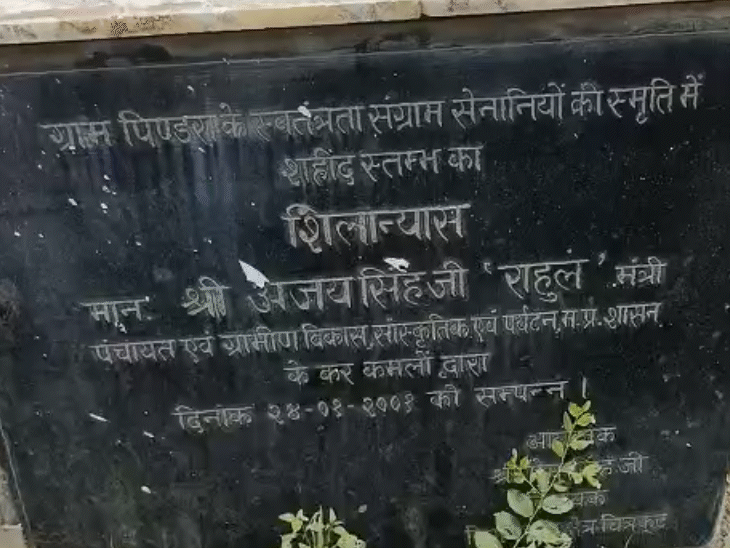 ग्राम पिण्डरा के स्वतंत्रता संग्राम सेनानियों की स्मृति में
शहीद स्तम्भ का
शिलान्यास
मान. श्री अजय सिंह जी 'राहुल' मंत्री
पंचायत एवं ग्रामीण विकास, सांस्कृतिक एवं पर्यटन, म.प्र. शासन
के कर कमलों द्वारा
दिनांक २४-०१-२००१ को सम्पन्न ।
जी
चित्रकूट